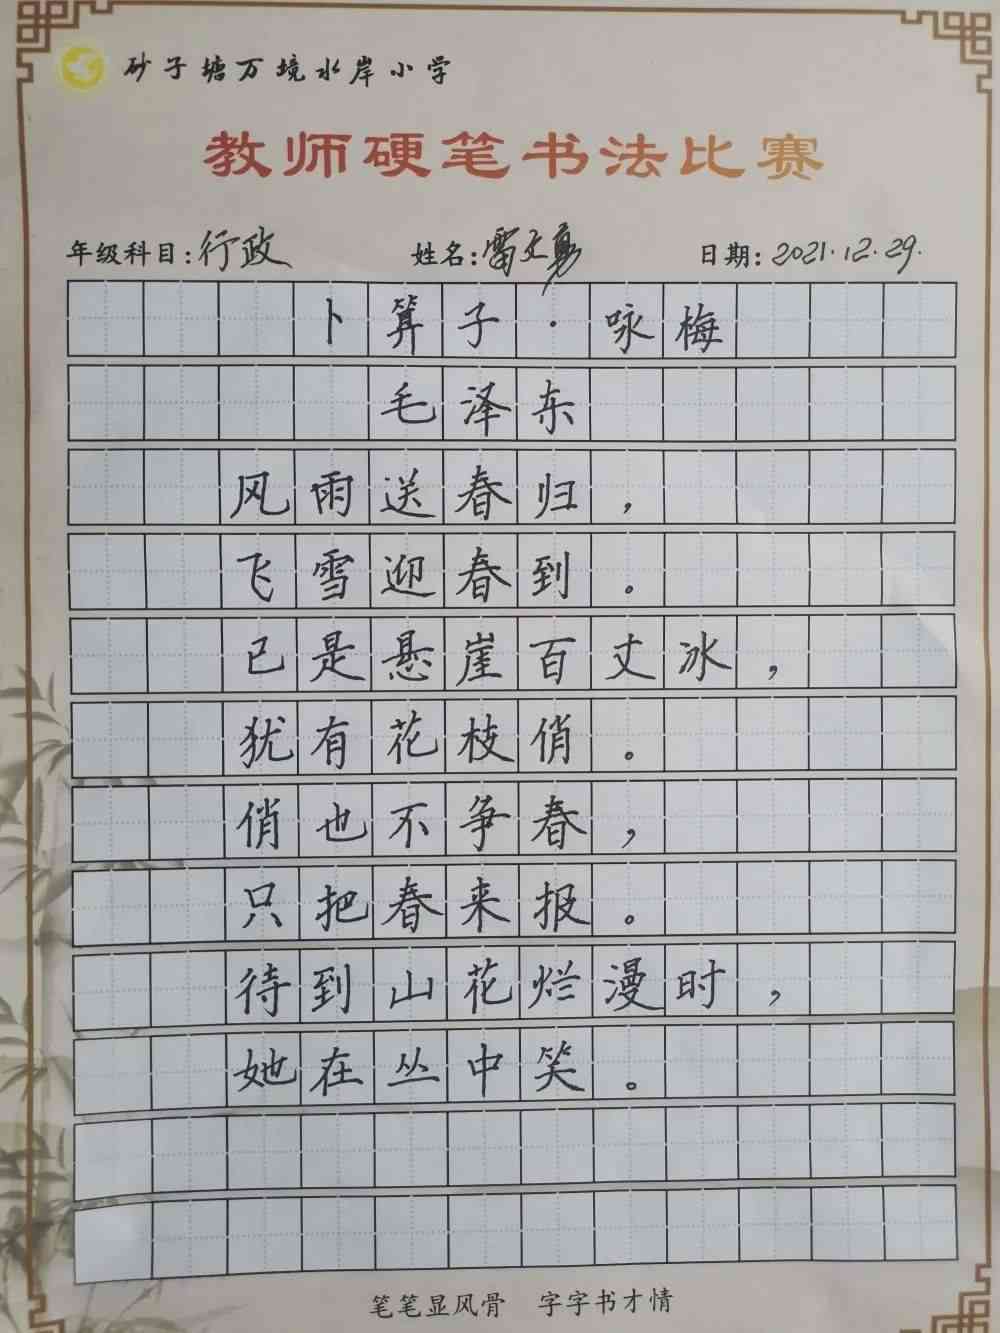 砂子塘万境水岸小学
教师硬笔书法比赛
年级科目:行政 姓名:雷文勇 日期:2021.12.29.
卜算子·咏梅
毛泽东
风雨送春归，
飞雪迎春到。
已是悬崖百丈冰，
犹有花枝俏。
俏也不争春，
只把春来报。
待到山花烂漫时，
她在丛中笑。
笔笔显风骨 字字书才情